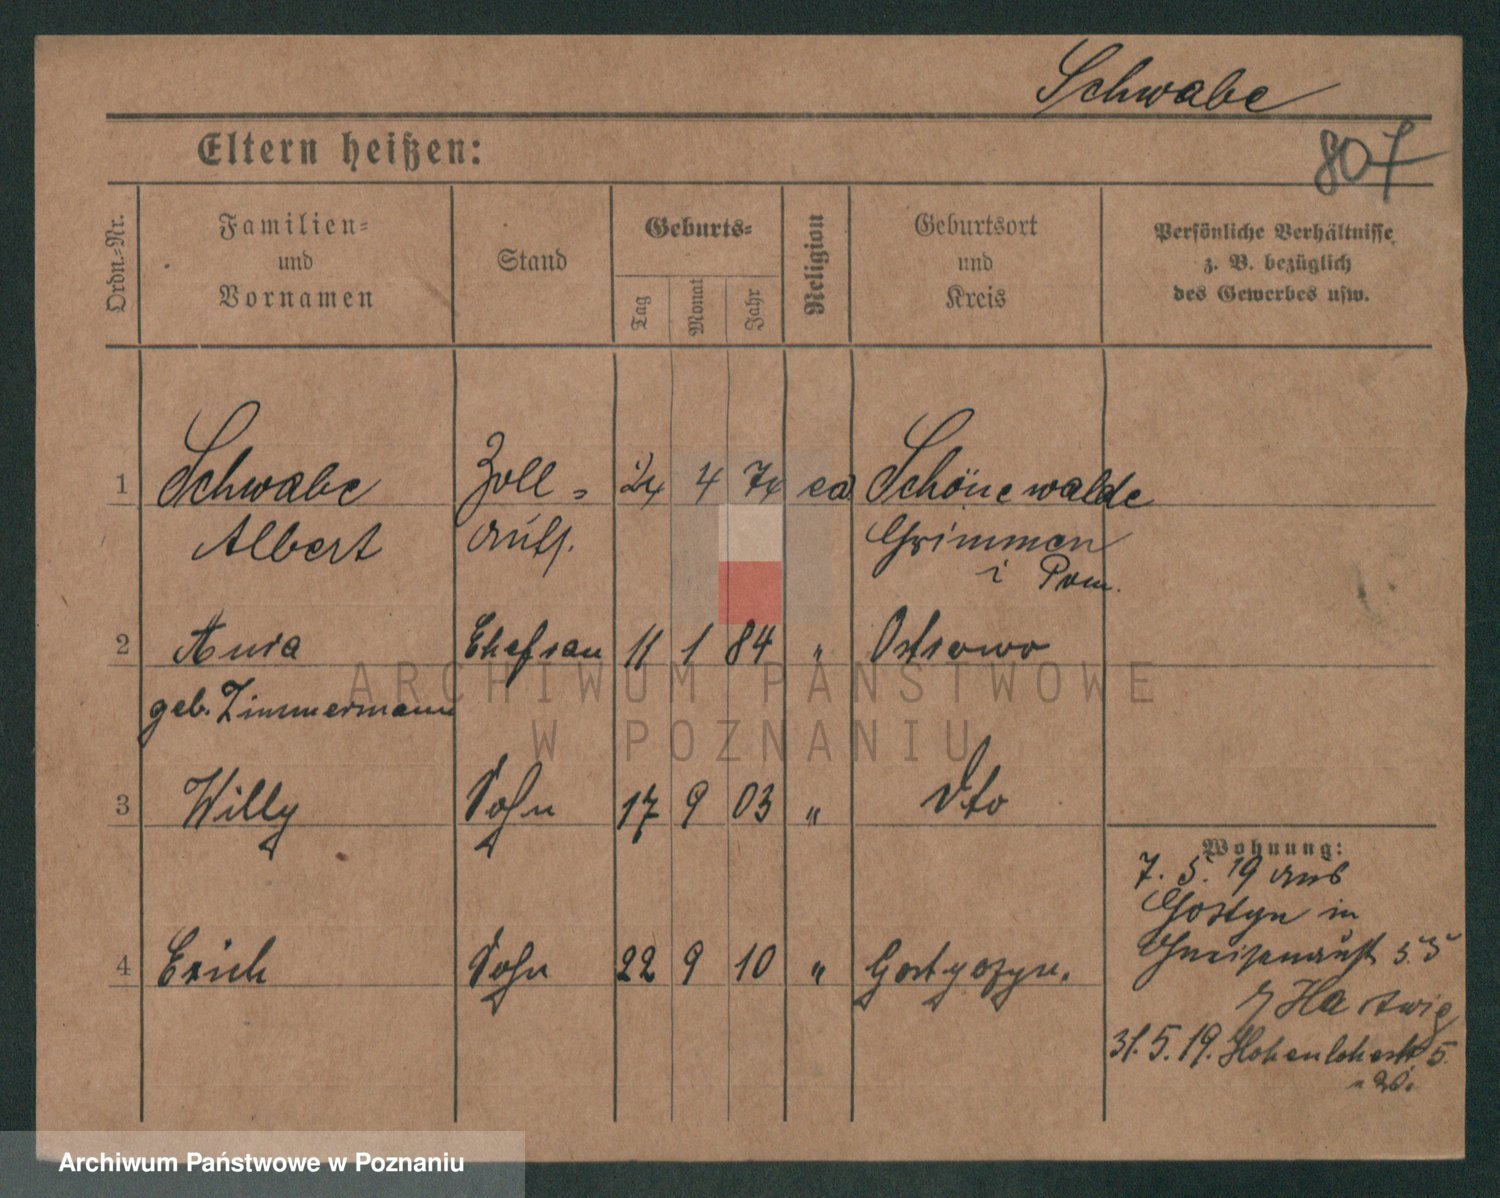 Schwabe
807
Eltern heißen:
Ordn.=Nr.
Familien=
und
Vornamen
Stand
Geburts=
Tag
Monat
Jahr
Religion
Geburtsort
und
Kreis
Persönliche Verhältnisse
z. B. bezüglich
des Gewerbes usw.
1 Schwabe Zoll= 24 4 74 ev Schönewalde
Albert aufs. Grimmen
i Pom.
2 Anna Ehefrau 11 1 84 " Ostrowo
geb. Zimmermann
3 Willy Sohn 17 9 03 " dto
4 Erich Sohn 22 9 10 "
Wohnung:
7. 5. 19 aus
Gostyn in
Gneisenaust 5.
Hartwig
31. 5. 19. Hohenlohestr 5.
ARCHIWUM PAŃSTWOWE
W POZNANIU
Archiwum Państwowe w Poznaniu